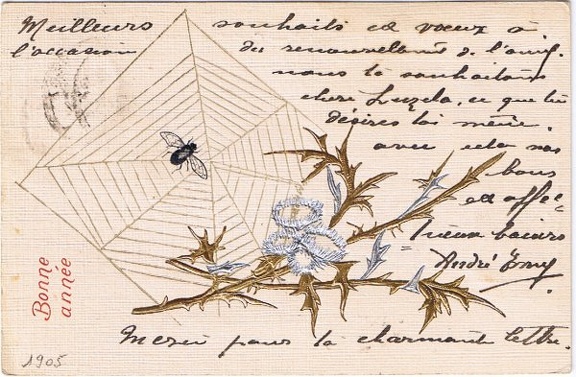 Meilleurs souhaits et vœux à
l'occasion du renouvellement de l'année.
nous te souhaitons
chère Luzela, ce que tu
désires toi même.
avec cela nos
bons
et affec-
tueux baisers
André
Merci pour ta charmante lettre.
Bonne
année
1905